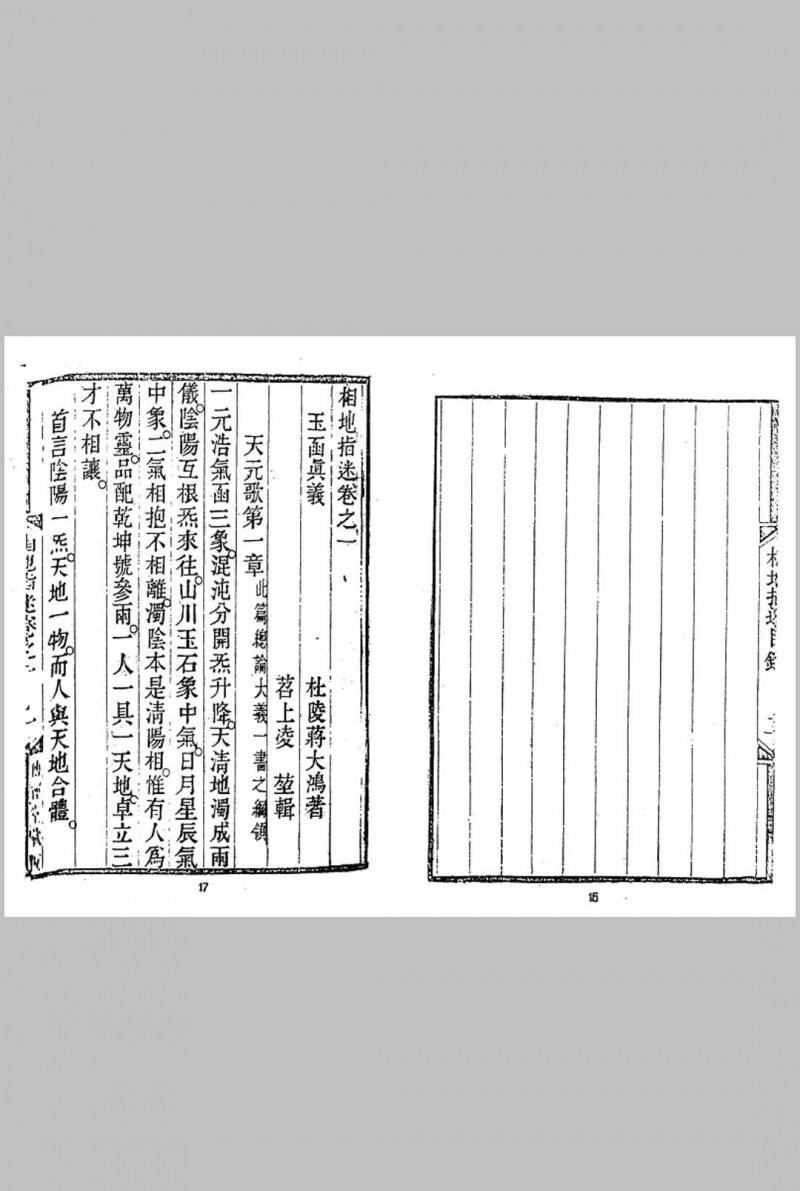 相地指迷目錄
16
相地指迷卷之一
玉函眞義
杜陵蔣大鴻著
苕上凌堃輯
天元歌第一章 此篇總論大義一書之綱領
一元浩氣函三象。混沌分開炁升降。天清地濁成兩
儀。陰陽互根炁來往。山川玉石象中氣。日月星辰氣
中象。二氣相抱不相離。濁陰本是清陽相。惟有人爲
萬物靈。品配乾坤號參兩。一人一具一天地。卓立三
才不相讓。
首言陰陽一炁。天地一物。而人與天地合體。
相地指迷卷之一
17